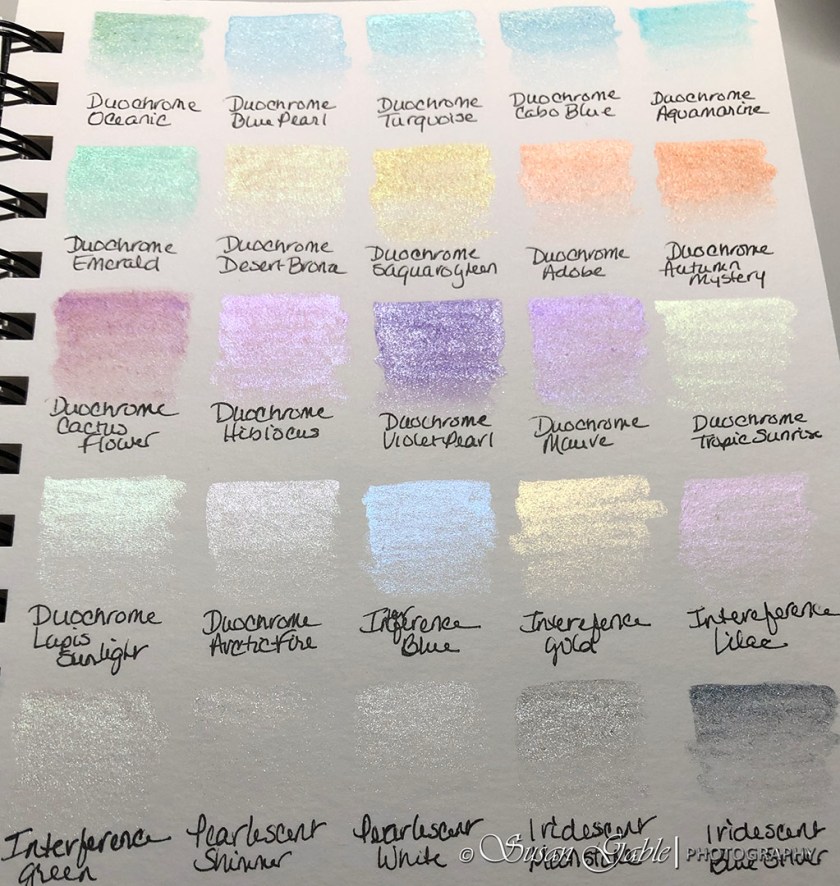 Duochrome Oceanic
Duochrome Blue Pearl
Duochrome Turquoise
Duochrome Cabo Blue
Duochrome Aquamarine
Duochrome Emerald
Duochrome Desert Bronz
Duochrome Saguaro Green
Duochrome Adobe
Duochrome Autumn Mystery
Duochrome Cactus Flower
Duochrome Hibiscus
Duochrome Violet Pearl
Duochrome Mauve
Duochrome Tropic Sunrise
Duochrome Lapis Sunlight
Duochrome Arctic Fire
Blue
Intereference Gold
Intereference Lilac
Interference Green
Pearlescent Shimmer
Pearlescent White
Iridescent
Iridescent Blue Silver
© Susan Gable | PHOTOGRAPHY